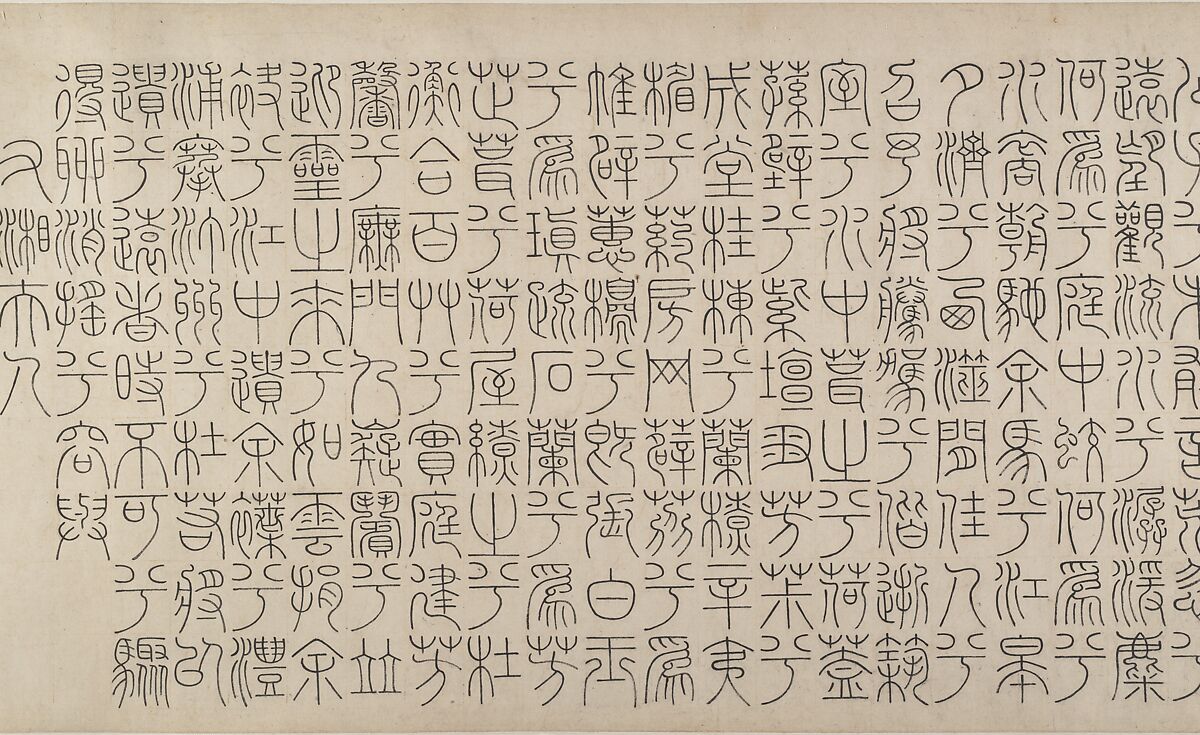 公子兮未敢言荒忽兮
遠望觀流水兮潺湲麋
何爲兮庭中蛟何爲兮
水裔朝馳余馬兮江皋
夕濟兮西澨聞佳人兮
召予將騰駕兮偕逝築
室兮水中葺之兮荷蓋
蓀壁兮紫壇匊芳茮兮
成堂桂棟兮蘭橑辛夷
楣兮葯房网薜荔兮爲
帷擗蕙櫋兮既張白玉
兮爲瑱疏石蘭兮爲芳
芷葺兮荷屋繚之兮杜
衡合百艸兮實庭建芳
馨兮廡門九嶷繽兮並
迎靈之來兮如雲捐余
袂兮江中遺余褋兮澧
浦搴汀洲兮杜若將以
遺兮遠者時不可兮驟
得聊消搖兮容與
又湘夫人